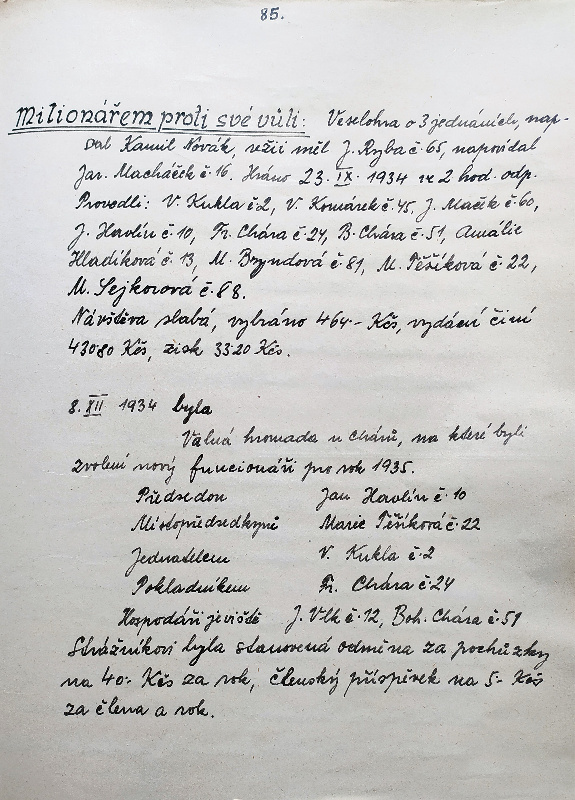 85.
Milionářem proti své vůli: Veselohra o 3 jednáních, nap-
sal Kamil Novák, režii měl J. Ryba č. 65, napovídal
Jar. Macháček č. 16. Hráno 23. IX. 1934 ve 2 hod. odp.
Provedli: V. Kukla č. 2, V. Komárek č. 45, J. Macík č. 60,
J. Havlín č. 10, Fr. Chára č. 24, B. Chára č. 51, Amálie
Hladíková č. 13, M. Bryndová č. 81, M. Těšíková č. 22,
M. Sejkorová č. 88.
Návštěva slabá, vybráno 464.- Kčs, vydání činí
430·80 Kčs, zisk 33·20 Kčs.
8. XII 1934 byla
Valná hromada u Chárů, na které byli
zvolení nový funcionáři pro rok 1935.
Předsedou Jan Havlín č. 10
Místopředsedkyně Marie Těšíková č. 22
Jednatelem V. Kukla č. 2
Pokladníkem Fr. Chára č. 24
Hospodáři jeviště J. Vlk č. 12, Boh. Chára č. 51
Strážníkovi byla stanovená odměna za pochůzky
na 40.- Kčs za rok, členský příspěvek na 5.- Kčs
za člena a rok.